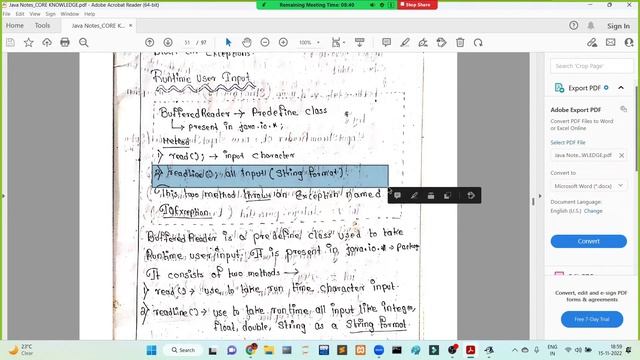 Java Notes_CORE KNOWLEDGE.pdf - Adobe Acrobat Reader (64-bit)
Remaining Meeting Time: 08:40
Stop Share
File Edit View Sign Window Help
Home Tools Java Notes_CORE K...
Sign In
51 / 97
100%
Runtime User Input
BufferedReader → Predefine class
↳ present in java.io.*;
Method
1) read(); → input character
2) readline(); all input (String format)
This two method throws an Exception named
IOException
BufferedReader is a predefine class used to take
Runtime user input. It is present in java.io.*
It consists of two methods →
1) read() → use to take run time character input
2) readline() → use to take runtime all input like integer,
float, double, String as a String format
Search 'Crop Page'
Export PDF
Adobe Export PDF
Convert PDF Files to Word
or Excel Online
Select PDF File
Java Note...WLEDGE.pdf
Convert to
Microsoft Word (*.docx)
Document Language:
English (U.S.) Change
Convert
Convert, edit and e-sign PDF
forms & agreements
Free 7-Day Trial
23°C
Clear
Search
ENG
IN
18:59
15-11-2022